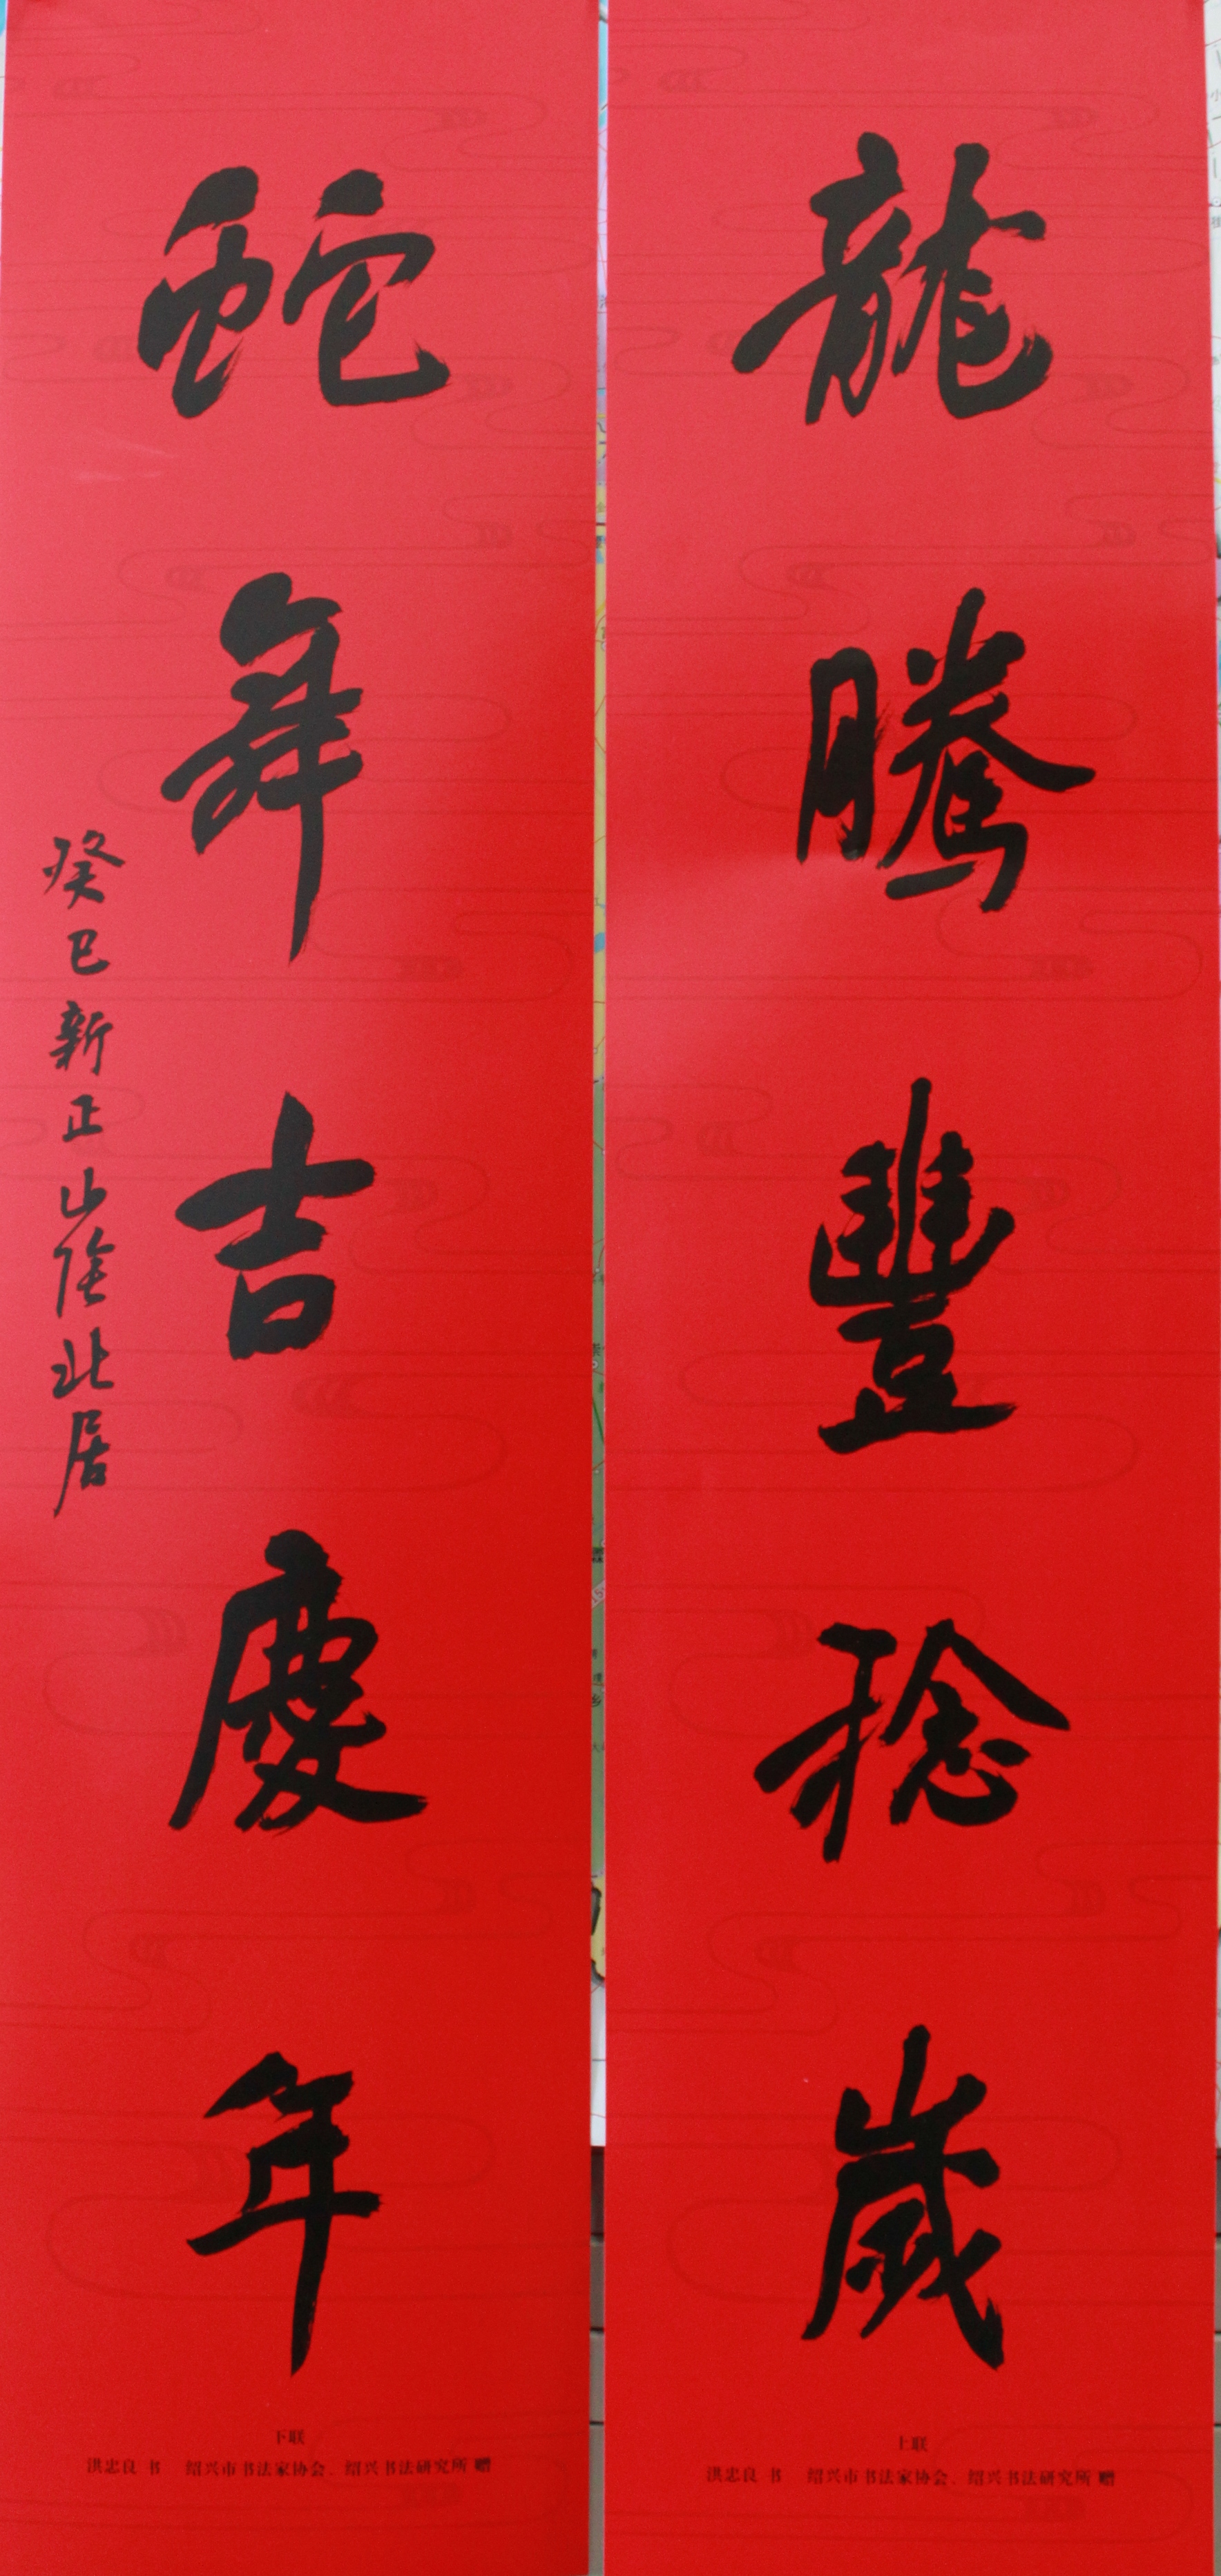 龍騰豐稔歲
上联
洪忠良 书 绍兴市书法家协会、绍兴书法研究所 赠
蛇舞吉慶年
癸巳新正山陰北居
下联
洪忠良 书 绍兴市书法家协会、绍兴书法研究所 赠